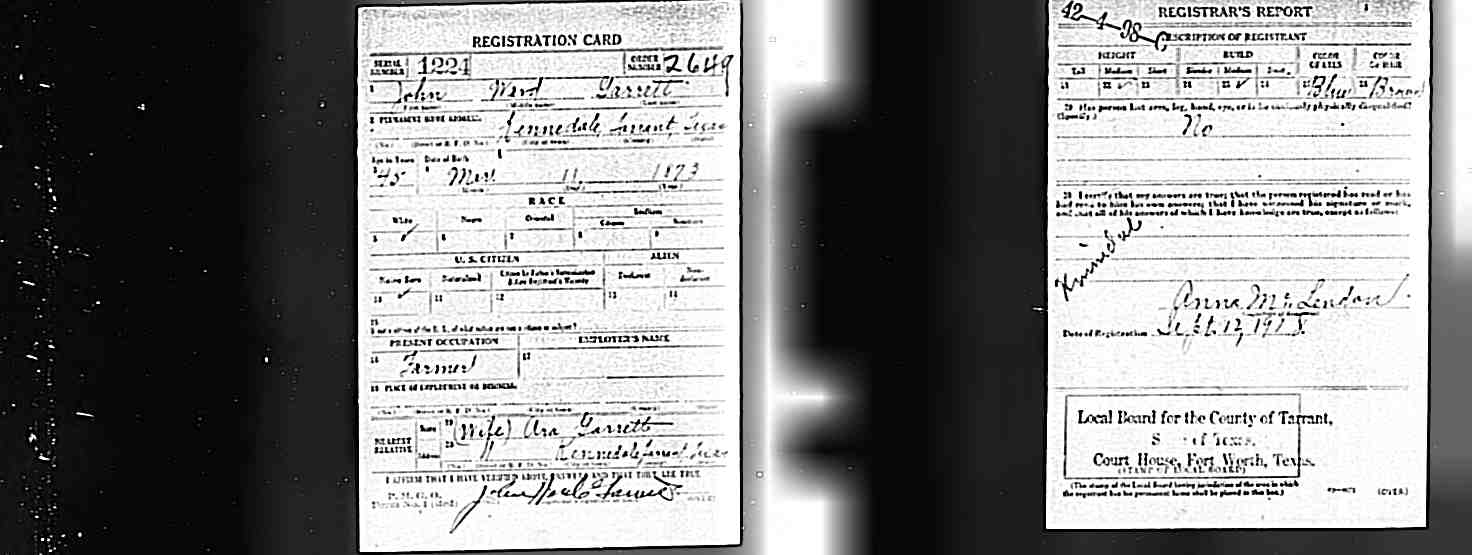 REGISTRATION CARD
SERIAL NUMBER 1224 ORDER NUMBER 2649
1 John Ward Garrett
(First name) (Middle name) (Last name)
2 PERMANENT HOME ADDRESS:
Kennedale, Tarrant, Texas
(No.) (Street or R. F. D. No.) (City or town) (County) (State)
Age in Years Date of Birth
3 45 4 Mar. 11 1873
(Month) (Day) (Year)
RACE
White Negro Oriental Indian
Citizen Noncitizen
5 ✓ 6 7 8 9
U. S. CITIZEN ALIEN
Native Born Naturalized Citizen by Father's Naturalization Before Registrant's Majority Declarant Non-declarant
10 ✓ 11 12 13 14
15
If not a citizen of the U. S., of what nation are you a citizen or subject?
PRESENT OCCUPATION EMPLOYER'S NAME
16 Farmer 17
18 PLACE OF EMPLOYMENT OR BUSINESS:
(No.) (Street or R. F. D. No.) (City or town) (County) (State)
NEAREST RELATIVE Name 19 (Wife) Ara Garrett
Address 20 Kennedale, Tarrant, Texas
(No.) (Street or R. F. D. No.) (City or town) (County) (State)
I AFFIRM THAT I HAVE VERIFIED ABOVE ANSWERS AND THAT THEY ARE TRUE
P. M. G. O.
Form No. 1 (Red)
John Garrett
(OVER)
42-4-98 C
REGISTRAR'S REPORT
DESCRIPTION OF REGISTRANT
HEIGHT BUILD COLOR OF EYES COLOR OF HAIR
Tall Medium Short Slender Medium Stout
21 22 ✓ 23 24 25 ✓ 26 27 Blue 28 Brown
29 Has person lost arm, leg, hand, eye, or is he obviously physically disqualified?
(Specify.)
No
30 I certify that my answers are true; that the person registered has read or has
had read to him his own answers; that I have witnessed his signature or mark,
and that all of his answers of which I have knowledge are true, except as follows:
Kennedale
Anna McLendon
Date of Registration Sept. 12, 1918
Local Board for the County of Tarrant,
State of Texas,
Court House, Fort Worth, Texas.
(STAMP OF LOCAL BOARD)
(The stamp of the Local Board having jurisdiction of the area in which
the registrant has his permanent home shall be placed in this box.)
(OVER)